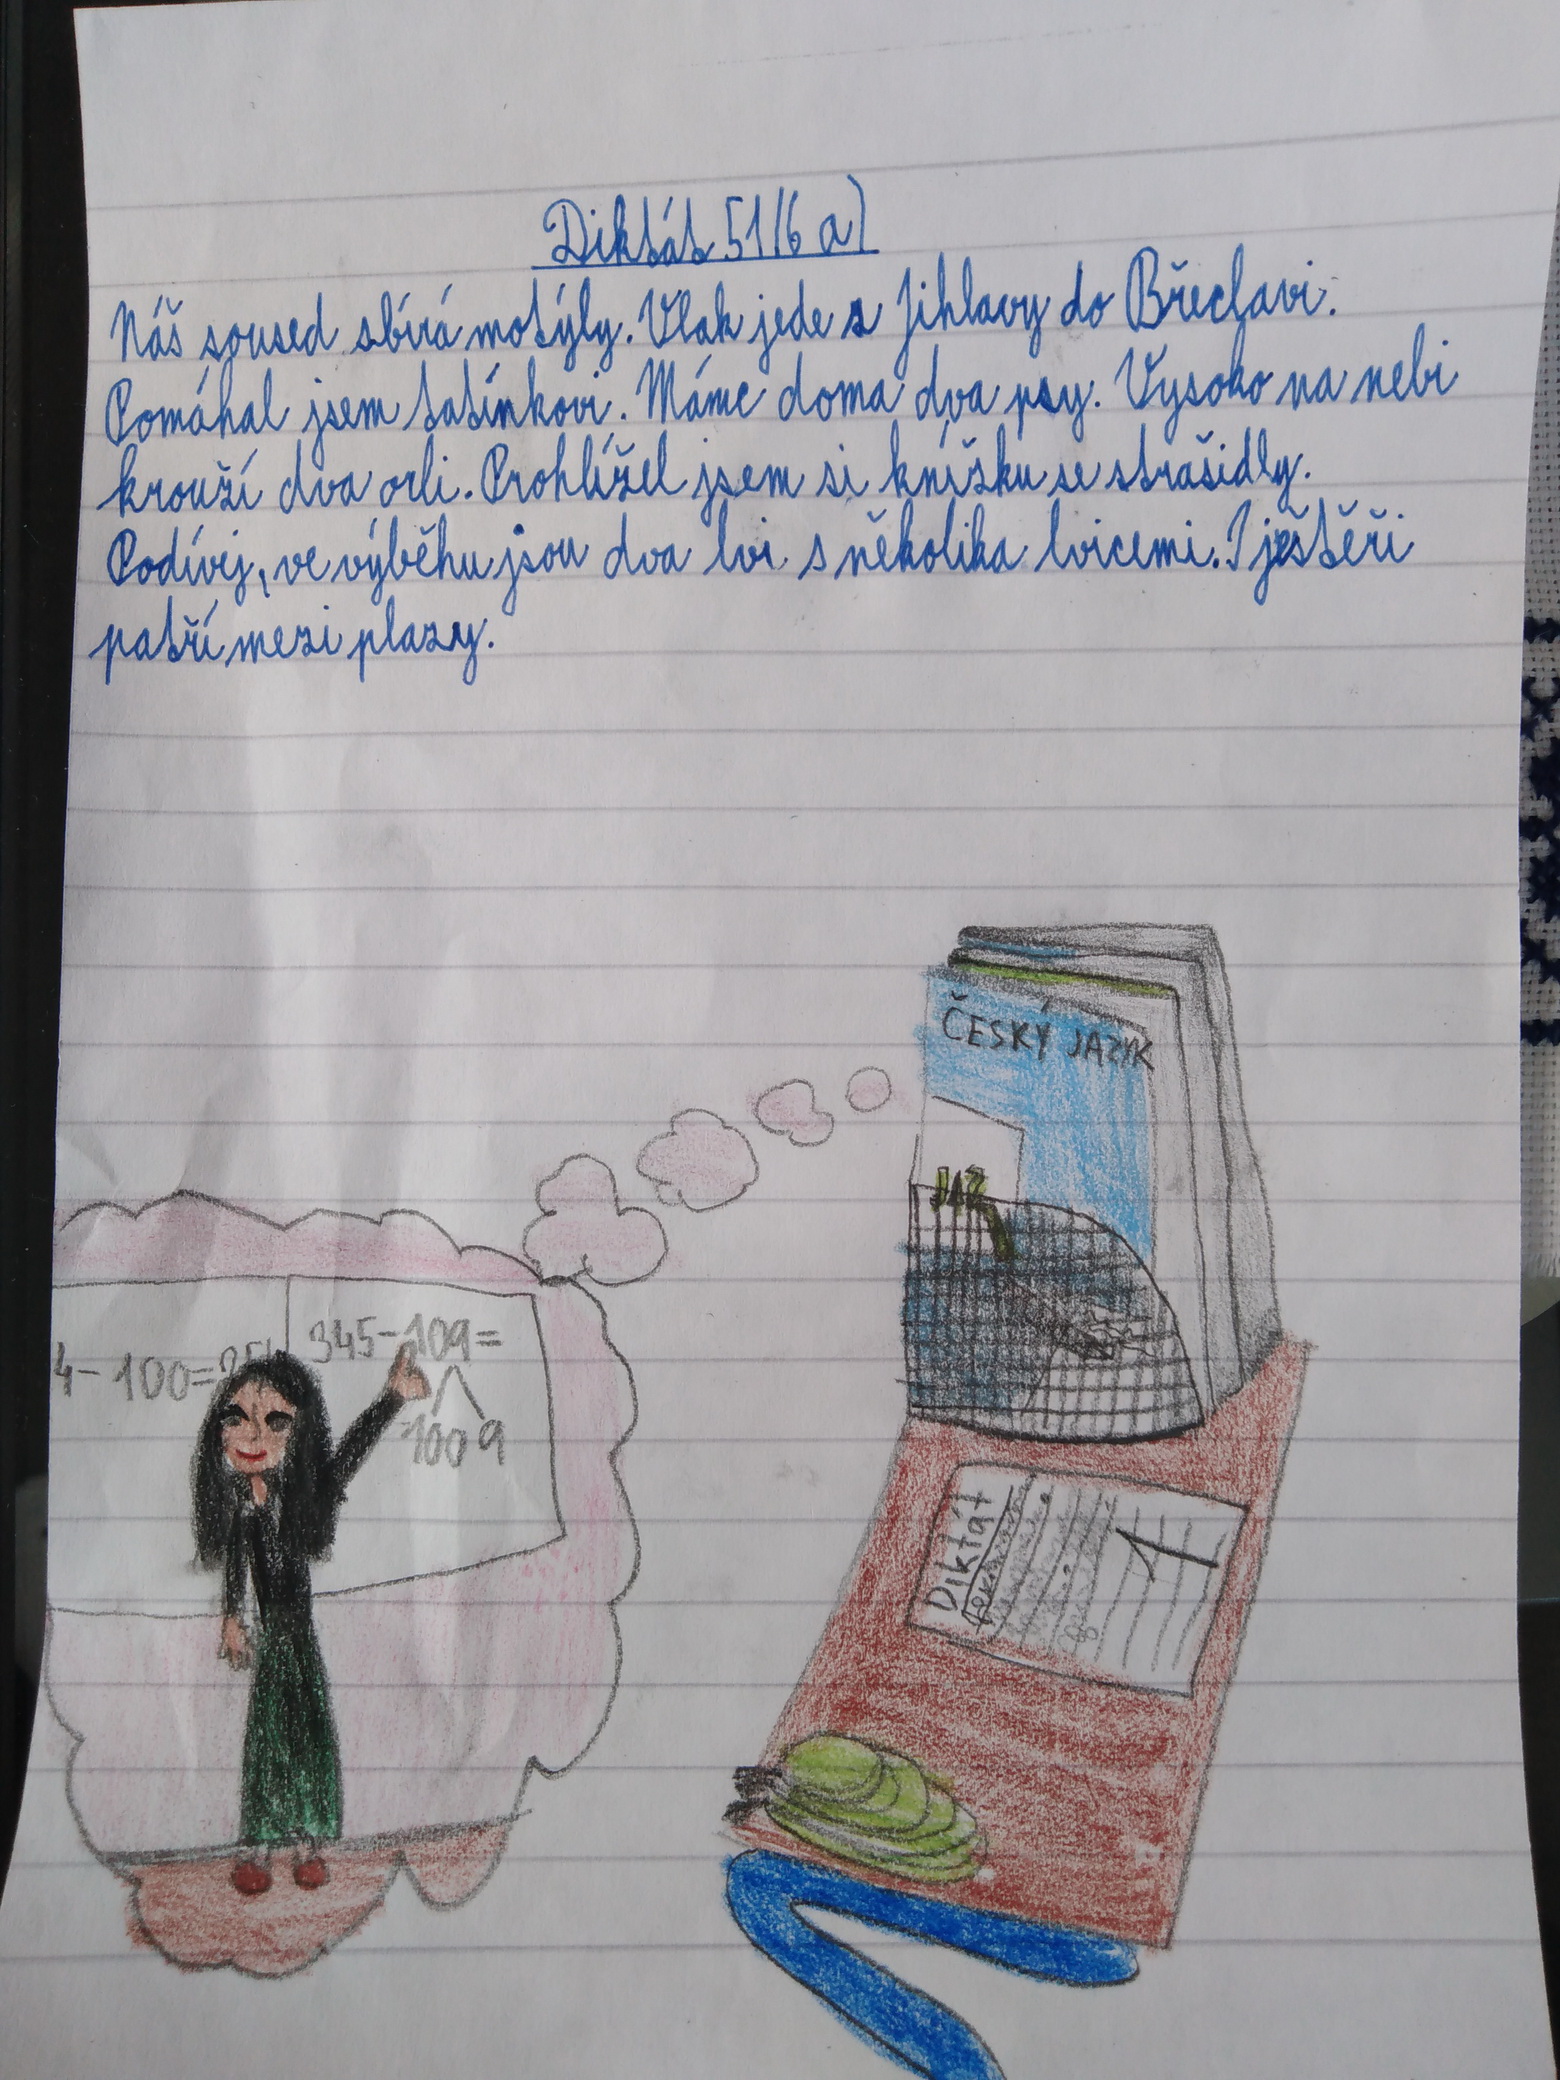 Diktát 51/6 a)
Náš soused sbírá motýly. Vlak jede z Jihlavy do Břeclavi.
Pomáhal jsem tatínkovi. Máme doma dva psy. Vysoko na nebi
krouží dva orli. Prohlížel jsem si knížku se strašidly.
Podívej, ve výběhu jsou dva lvi s několika lvicemi. I ještěři
patří mezi plazy.
ČESKÝ JAZYK
JAZ
4-100=
345-109=
100 9
Diktát
1